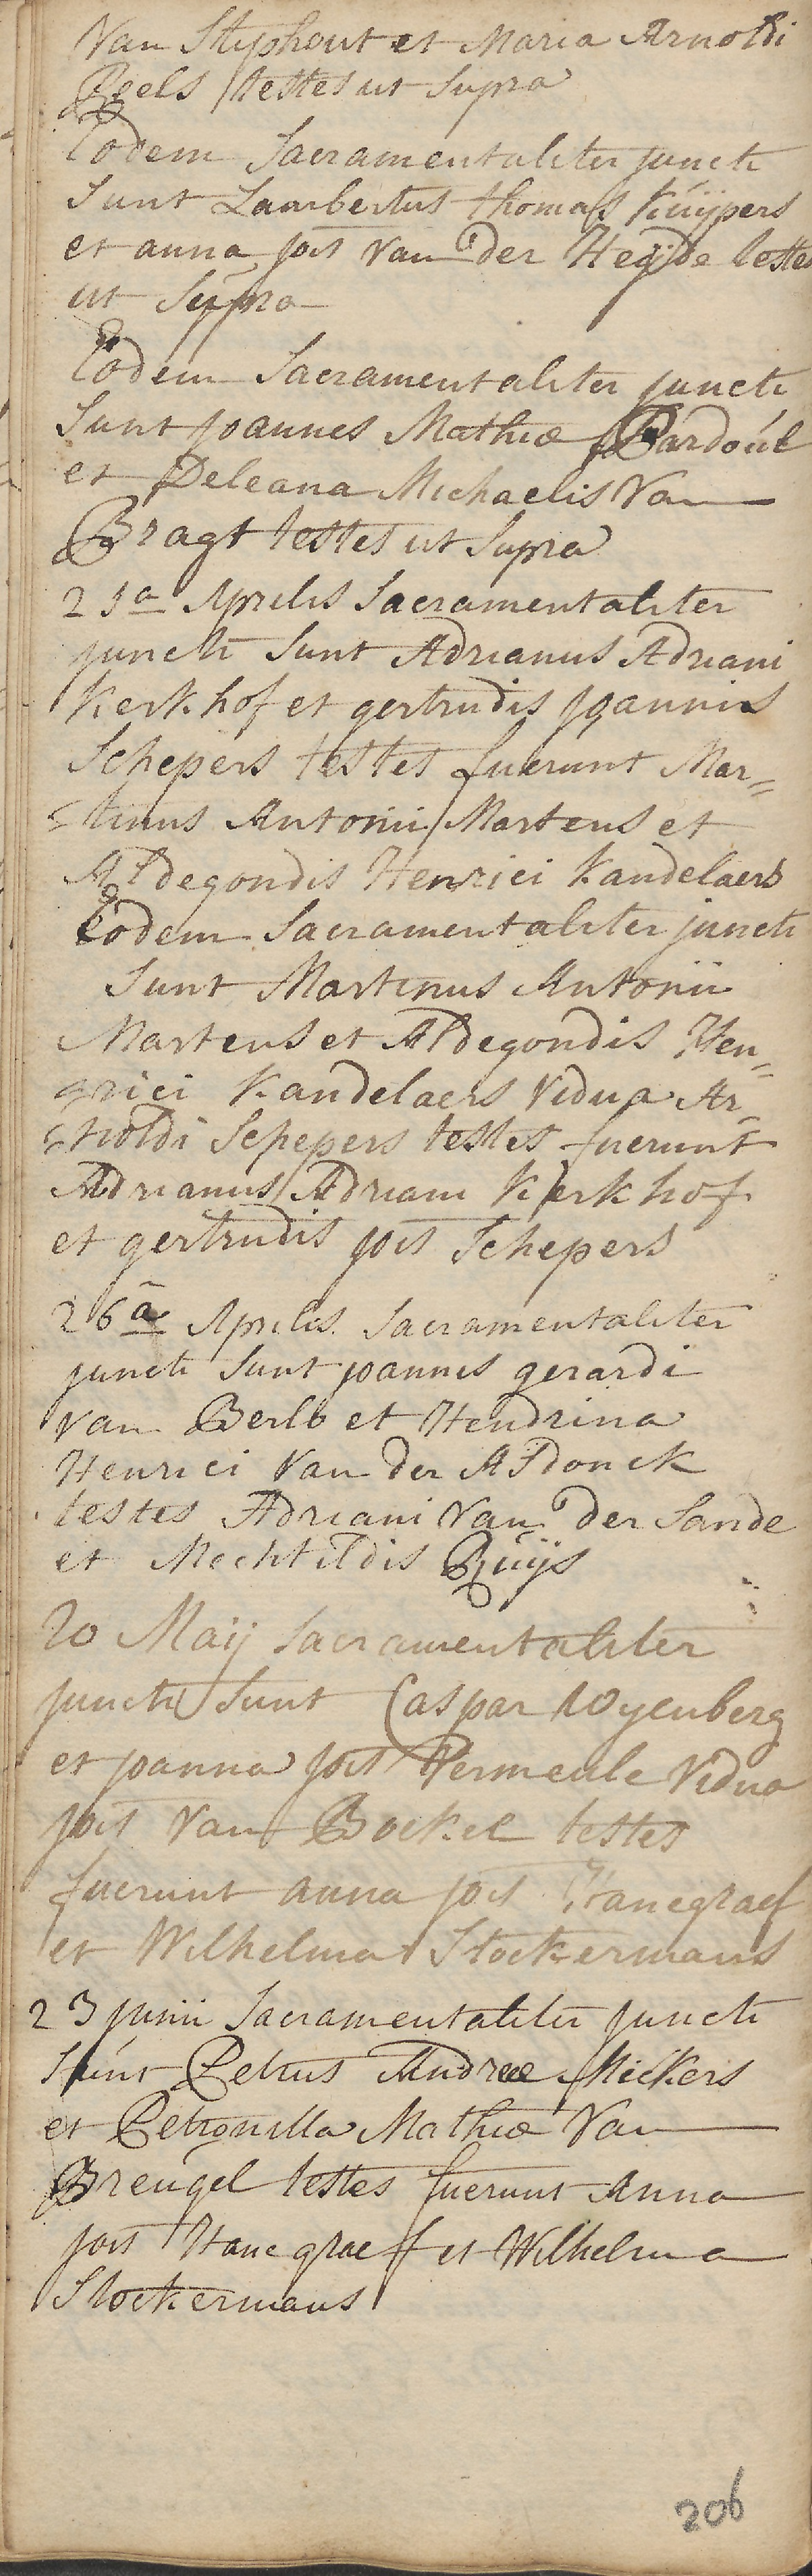 Van Styphout et Maria Arnoldi
Roels testes ut Supra
Eodem Sacramentaliter juncti
Sunt Lambertus thomas Kuijpers
et anna jois van der Heijde testes
ut Supra
Eodem Sacramentaliter juncti
Sunt joannes Mathiæ Bardoul
et Deleana Michaelis Van
Bragt testes ut Supra
25a Aprilis Sacramentaliter
juncti Sunt Adrianus Adriani
Kerkhof et gertrudis joannis
Schepers testes fuerunt Mar=
=tinus Antonii Martens et
Aldegondis Henrici Kandelaers
Eodem Sacramentaliter juncti
Sunt Martinus Antonii
Martens et Aldegondis Hen=
=rici Kandelaers vidua Ar=
=noldi Schepers testes fuerunt
Adrianus Adriani Kerkhof
et gertrudis jois Schepers
26a Aprilis Sacramentaliter
juncti Sunt joannes gerardi
van Berlo et Hendrina
Henrici Van der Aldonck
testes Adriani Van der Sande
et Mechtildis Ruijs
20 Maij Sacramentaliter
juncti Sunt Caspar Woyenberg
et joanna jois Vermeule Vidua
jois Van Boekel testes
fuerunt anna jois Hanegraef
et Wilhelma Stockermans
23 junii Sacramentaliter juncti
Sunt Petrus Andreæ Mickers
et Petronilla Mathiæ Van
Breugel testes fuerunt Anna
jois Hanegraef et Wilhelma
Stockermans
206